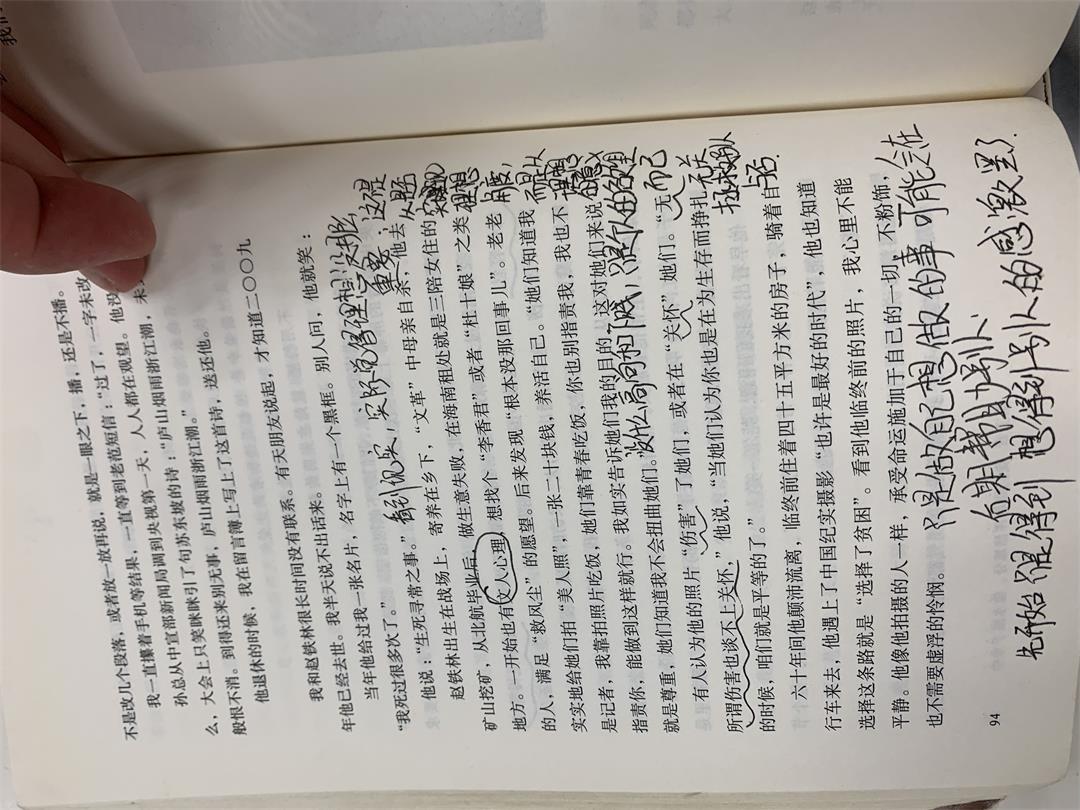 不是改几个段落，或者放一放再说，就是一眼之下，播，还是不播。
我一直攥着手机等结果，一直等到老范短信：“过了，一字未改
孙总从中宣部新闻局调到央视第一天，人人都在观望。他没
么，大会上只笑眯眯引了句苏东坡的诗：“庐山烟雨浙江潮，未
般恨不消。到得还来别无事，庐山烟雨浙江潮。”
他退休的时候，我在留言簿上写上了这首诗，送还他。
我和赵铁林很长时间没有联系。有天朋友说起，才知道二〇〇九
年他已经去世。我半天说不出话来。
当年他给过我一张名片，名字上有一个黑框。别人问，他就笑：
“我死过很多次了。”
他说：“生死寻常之事。”
赵铁林出生在战场上，寄养在乡下，“文革”中母亲自杀，他去
矿山挖矿，从北航毕业后，做生意失败，在海南租处就是三陪女住的
地方。一开始也有文人心理，想找个“李香君”或者“杜十娘”之类
的人，满足“救风尘”的愿望。后来发现“根本没那回事儿”。老老
实实地给她们拍“美人照”，一张二十块钱，养活自己。“她们知道我
是记者，我靠拍照片吃饭，她们靠青春吃饭，你也别指责我，我也不
指责你，能做到这样就行。我如实告诉她们我的目的，这对她们来说
就是尊重，她们知道我不会扭曲她们。”
有人认为他的照片“伤害”了她们，或者在“关怀”她们。“无
所谓伤害也谈不上关怀，”他说，“当她们认为你也是在为生存而挣扎
的时候，咱们就是平等的了。”
六十年间他颠沛流离，临终前住着四十五平方米的房子，骑着自
行车来去，他遇上了中国纪实摄影“也许是最好的时代”，他也知道
选择这条路就是“选择了贫困”。看到他临终前的照片，我心里不能
平静。他像他拍摄的人一样，承受命运施加于自己的一切，不粉饰，
也不需要虚浮的怜悯。
94
没什么高尚和下贱，
只是做自己想做的事
可能会在
自期帮助别人
先开始觉得到想得到别人的感激罢了.